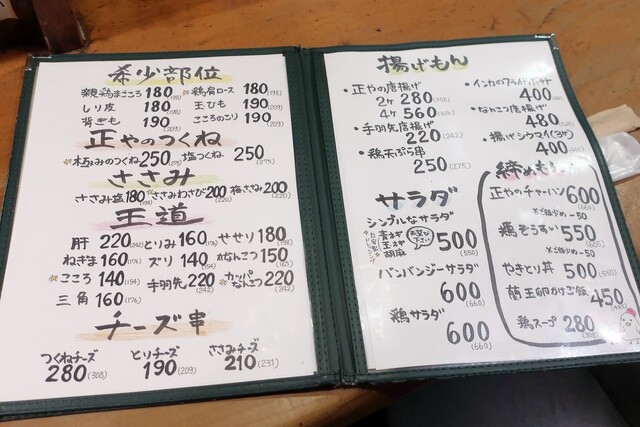 希少部位
親鶏まごころ 180 (198)
☆鶏肩ロース 180 (198)
しり皮 180 (198)
玉ひも 190 (209)
背ぎも 190 (209)
こころのこり 190 (209)
正やのつくね
☆極みのつくね 250 (275)
塩つくね 250 (275)
ささみ
ささみ塩 180 (198)
ささみわさび 200 (220)
梅ささみ 200 (220)
王道
肝 220 (242)
とりみ 160 (176)
せせり 180 (198)
ねぎま 160 (176)
ズリ 140 (154)
なんこつ 150 (165)
☆こころ 140 (154)
手羽先 220 (242)
☆カッパなんこつ 220 (242)
三角 160 (176)
チーズ串
つくねチーズ 280 (308)
とりチーズ 190 (209)
ささみチーズ 210 (231)
揚げもん
・正やの唐揚げ
2ヶ 280 (308)
4ヶ 560 (616)
・手羽先唐揚げ
220 (242)
・鶏天ぷら串
250 (275)
・インカのフライドポテト
400 (440)
・なんこつ唐揚げ
480 (528)
・揚げシウマイ(3ヶ)
400 (440)
サラダ
シンプルなサラダ
青ネギ
玉ネギ
胡麻
お選び下さい
500 (550)
バンバンジーサラダ
600 (660)
鶏サラダ
600 (660)
締めもん
正やのチャーハン 600 (660)
※ご飯少め -50
鶏ぞうすい 550 (605)
※ご飯少め -50
やきとり丼 500 (550)
蘭王卵かけご飯 450
鶏スープ 280 (308)